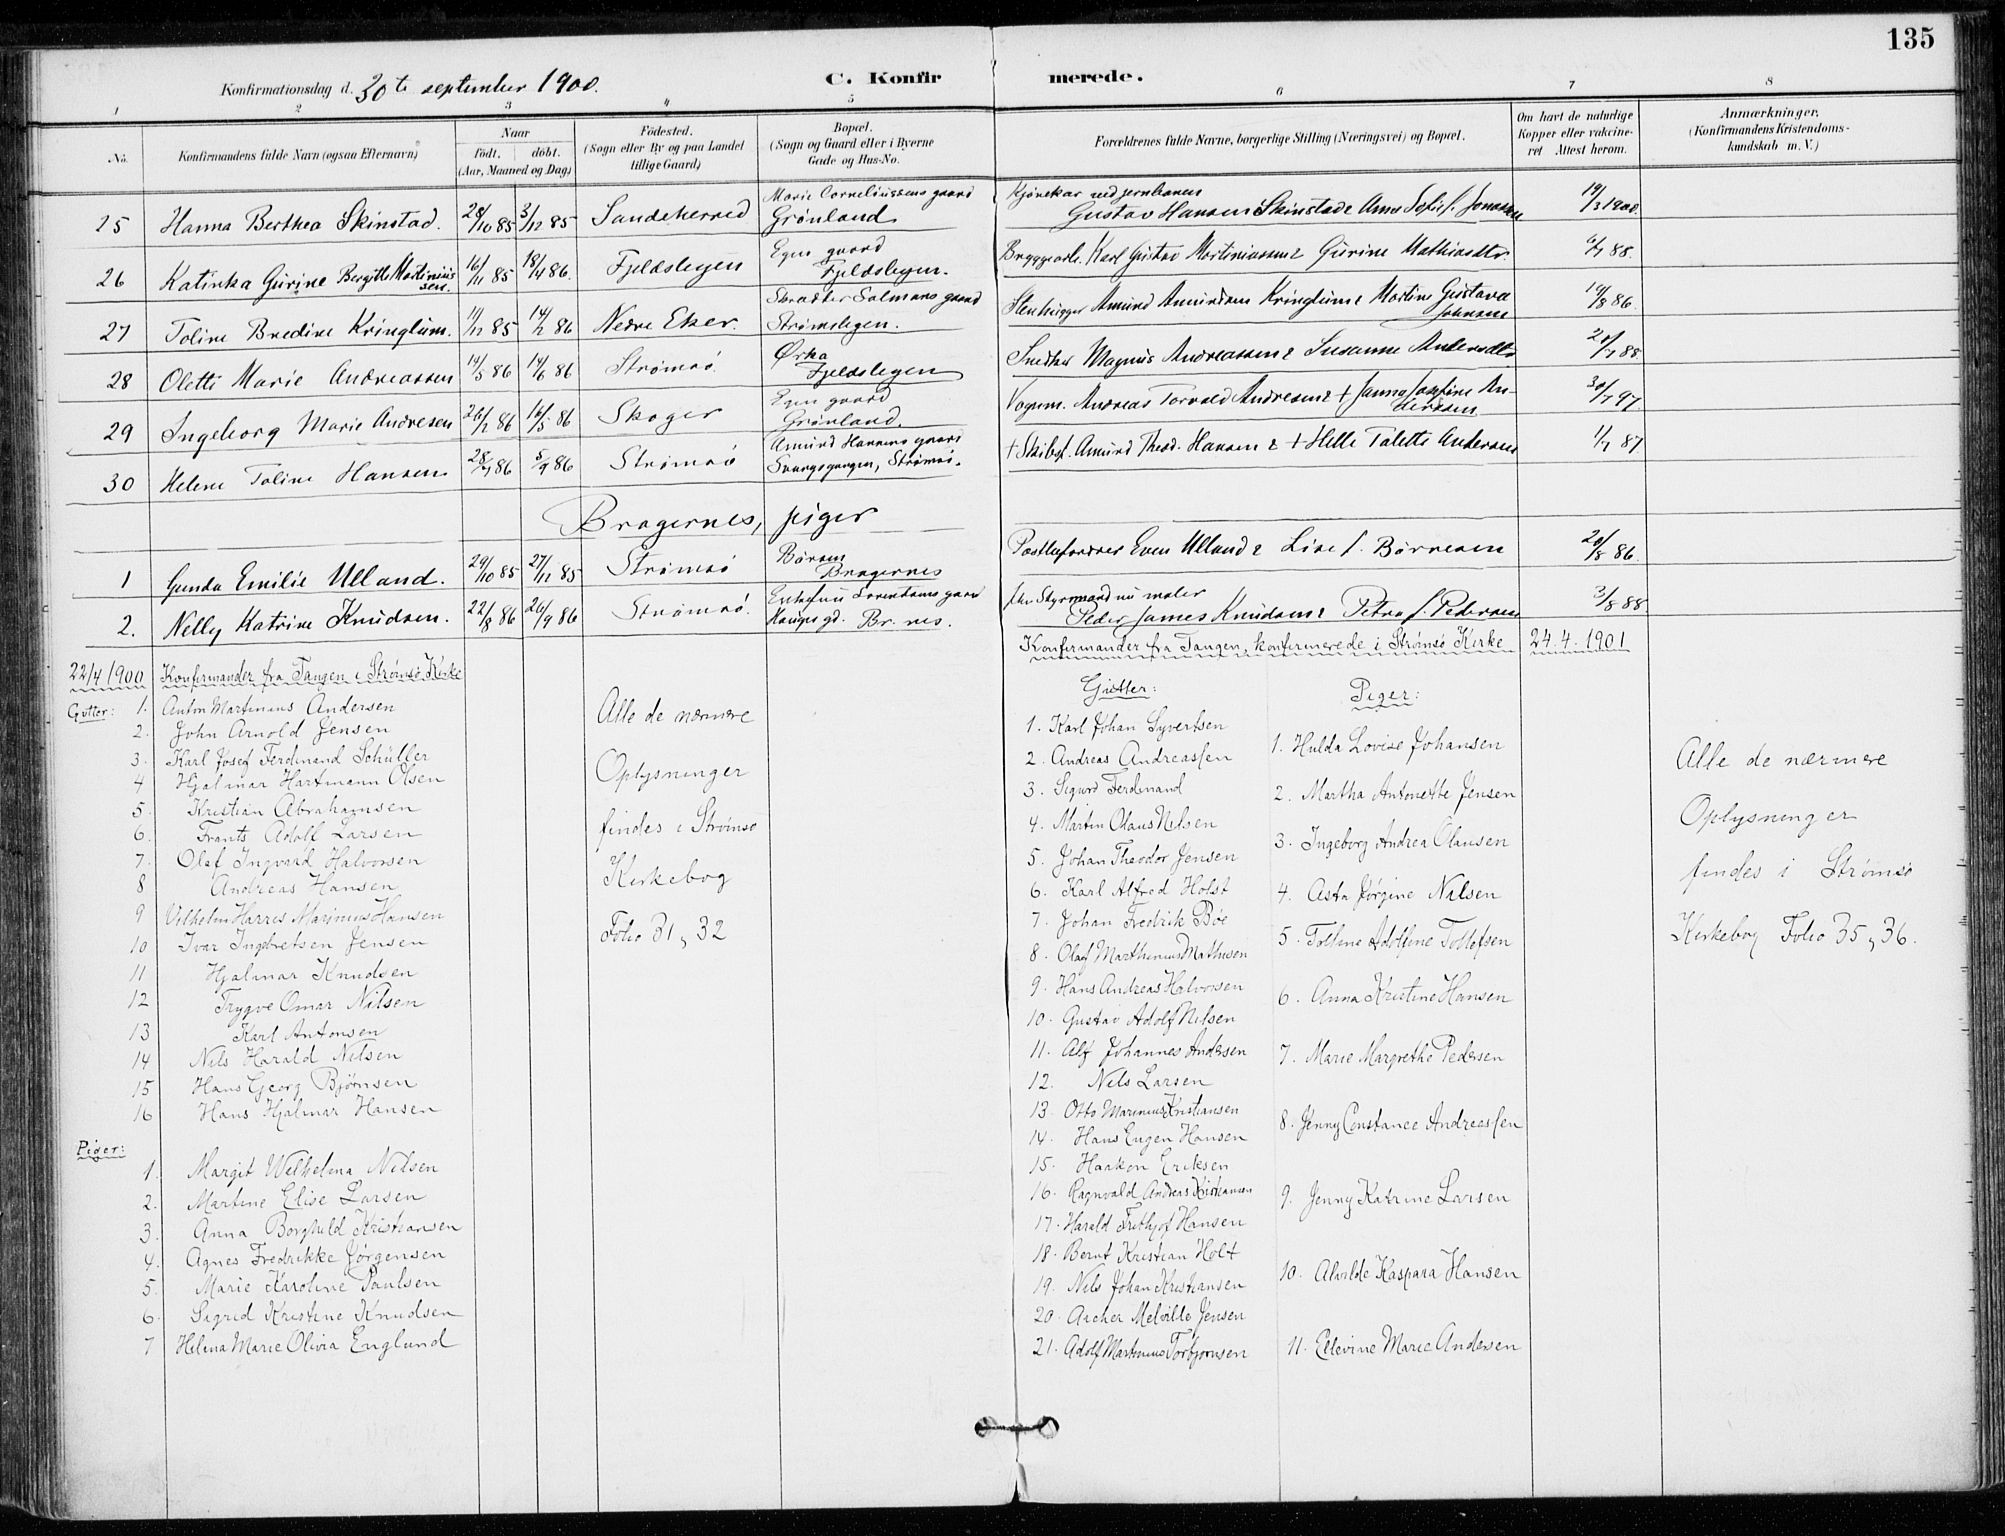 135
Konfirmationsdag d. 30te september 1900.
C. Konfirmerede.
1 2 3 4 5 6 7 8
No.
Konfirmandens fulde Navn (ogsaa Efternavn)
Naar
født. døbt.
(Aar, Maaned og Dag)
Fødested.
(Sogn eller By og paa Landet
tillige Gaard)
Bopæl.
(Sogn og Gaard eller i Byerne
Gade og Hus-No.
Forældrenes fulde Navne, borgerlige Stilling (Næringsvei) og Bopæl.
Om havt de naturlige
Kopper eller vakcine-
ret Attest herom.
Anmærkninger.
(Konfirmandens Kristendoms-
kundskab m. V.)
25 Hanna Berthea Skinstad. 28/10 85 3/12 85 Sandeherred Marie Corneliussens gaard Grønland Kjørekar ved jernbanen Gustav Hansen Skinstad & Anne Sofie f. Jonassen 19/3 1900.
26 Katinka Gurine Bergitte Martiniussen. 16/11 85 18/4 86. Fjeldslegen Egen gaard Fjeldslegen. Bryggearb. Karl Gustav Martiniussen & Gurine Mathiasdtr. 6/7 88.
27 Toline Bredine Kringlum. 11/12 85 14/2 86 Nedre Eker. Skrædder Salmans gaard Strømslegen. Stenhugger Amund Amundsen Kringlum & Martine Gustava Johnsen 19/8 86.
28 Olette Marie Andreassen 14/5 86 14/6 86 Strømsø. Ørka Fjeldslegen Snedker Magnus Andreassen & Susanne Andersdtr 20/7 88
29 Ingeborg Marie Andresen 26/2 86 16/5 86 Skoger Egen gaard Grønland. Vognm. Andreas Torvald Andresen & + Janna Josefine Andersen 30/7 97
30 Helene Toline Hansen 28/7 86 5/9 86 Strømsø Amund Hansens gaard Svangsgangen, Strømsø. + Skibsf. Amund Theod. Hansen & + Helle Talette Andersen 1/7 87
Bragernes, piger
1 Gunda Emilie Ulland. 29/10 85 27/12 85 Strømsø Børsen Bragernes Postbefordrer Even Ulland & Lise f. Børresen 20/8 86.
2. Nelly Katrine Knudsen. 22/8 86 26/9 86 Strømsø. Enkefru Lorentsens gaard Konges gd. Br.nes. før Styrmand nu maler Peder James Knudsen & Petra f. Pedersen 3/8 88
22/4 1900 Konfirmander fra Tangen i Strømsø Kirke
Gutter: 1. Anton Martinius Andersen
2. John Arnold Jensen
3. Karl Josef Ferdinand Schüller
4 Hjalmar Hartmann Olsen
5. Kristian Abrahamsen
6. Frants Adolf Larsen
7. Olaf Ingvard Halvorsen
8 Andreas Hansen
9 Vilhelm Harris Marinius Hansen
10 Ivar Ingebretsen Jensen
11 Hjalmar Knudsen
12 Trygve Omar Nilsen
13 Karl Antonsen
14 Nils Harald Nilsen
15 Hans Georg Bjørnsen
16 Hans Hjalmar Hansen
Piger:
1. Margit Wilhelma Nilsen
2. Martine Elise Larsen
3. Anna Borghild Kristiansen
4. Agnes Fredrikke Jørgensen
5. Marie Karoline Paulsen
6. Sigrid Kristine Knudsen
7 Helena Marie Olivia Englund
Alle de nærmere
Oplysninger
findes i Strømsø
Kirkebog
Folio 31 og 32
Konfirmander fra Tangen, konfirmerede i Strømsø Kirke 24.4.1901
Gutter:
1. Karl Johan Syvertsen
2. Andreas Andreassen
3. Sigurd Ferdinand
4. Martin Olaus Nilsen
5. Johan Theodor Jensen
6. Karl Alfred Holst
7. Johan Fredrik Bøe
8. Olaf Marthinius Mathisen
9. Hans Andreas Halvorsen
10. Gustav Adolf Nilsen
11. Alf Johannes Andersen
12. Nils Larsen
13. Otto Marinius Kristiansen
14. Hans Eugen Hansen
15. Haakon Eriksen
16. Ragnvald Andreas Kristiansen
17. Harald Frithjof Hansen
18. Bernt Kristian Holt
19. Nils Johan Kristiansen
20. Archer Melville Jensen
21. Adolf Martinius Torbjørnsen
Piger:
1. Hulda Lovise Johansen
2. Martha Antonette Jensen
3. Ingeborg Andrea Olausen
4. Asta Jørgine Nilsen
5. Tolline Adolfine Tollefsen
6. Anna Kristine Hansen
7. Marie Margrethe Pedersen
8. Jenny Constance Andreassen
9. Jenny Katrine Larsen
10. Alvilde Kaspara Hansen
11. Ellevine Marie Andersen
Alle de nærmere
Oplysninger
findes i Strømsø
Kirkebog Folio 35 og 36.